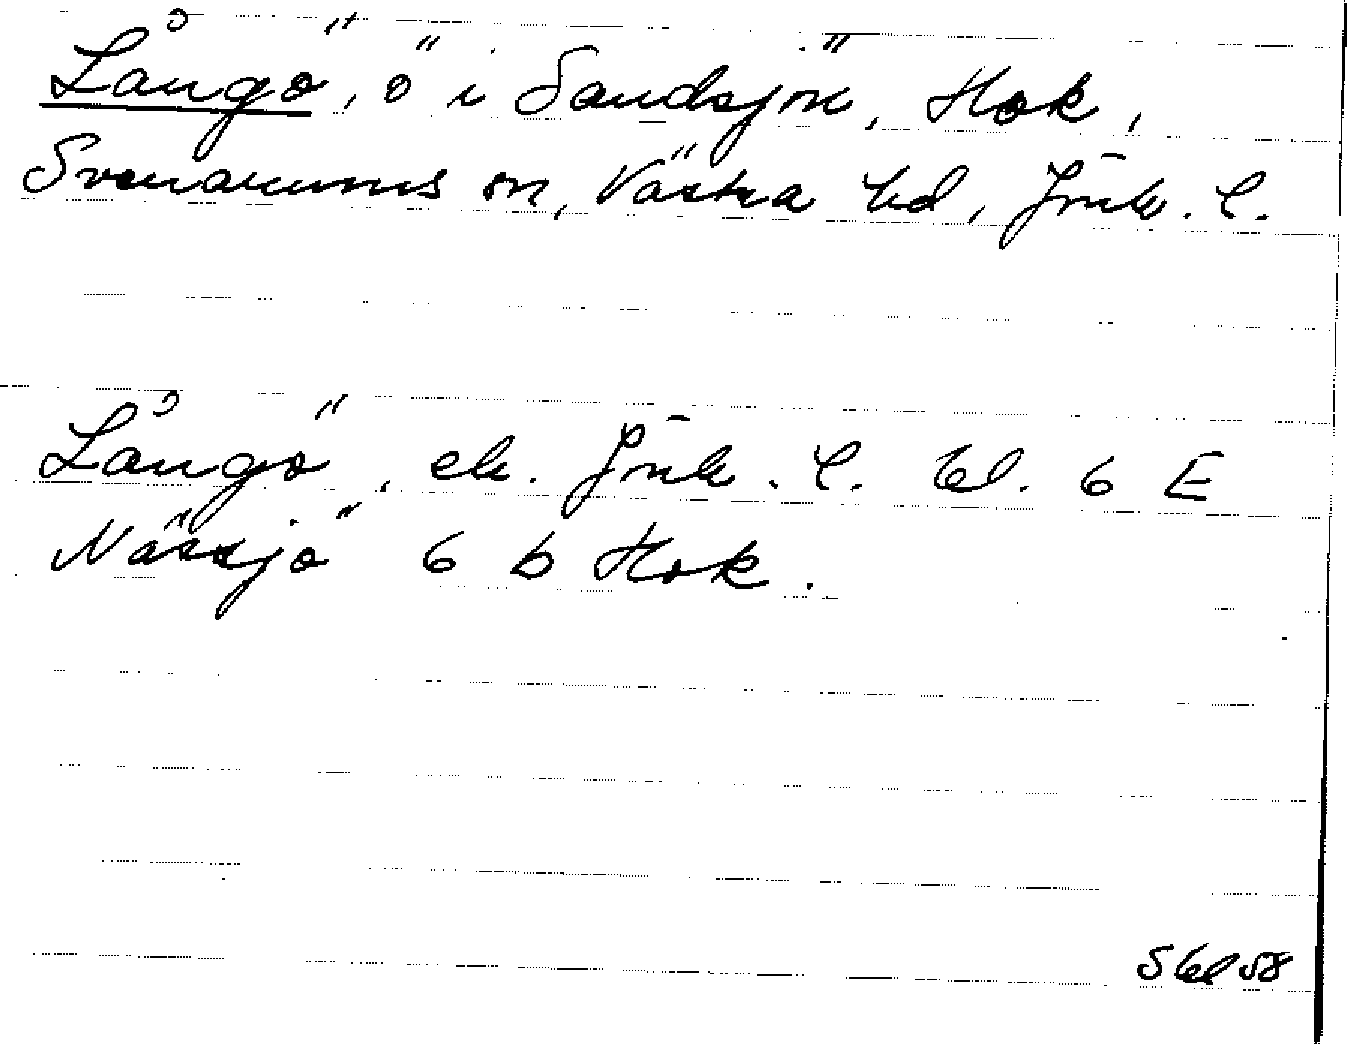 Långö, ö i Sandsjön, Hok,
Svenarums sn, Västra hd, Jönk. l.
Långö, ek. Jönk. l. bl. 6 E
Nässjö 6 b Hok.
Sbl 58